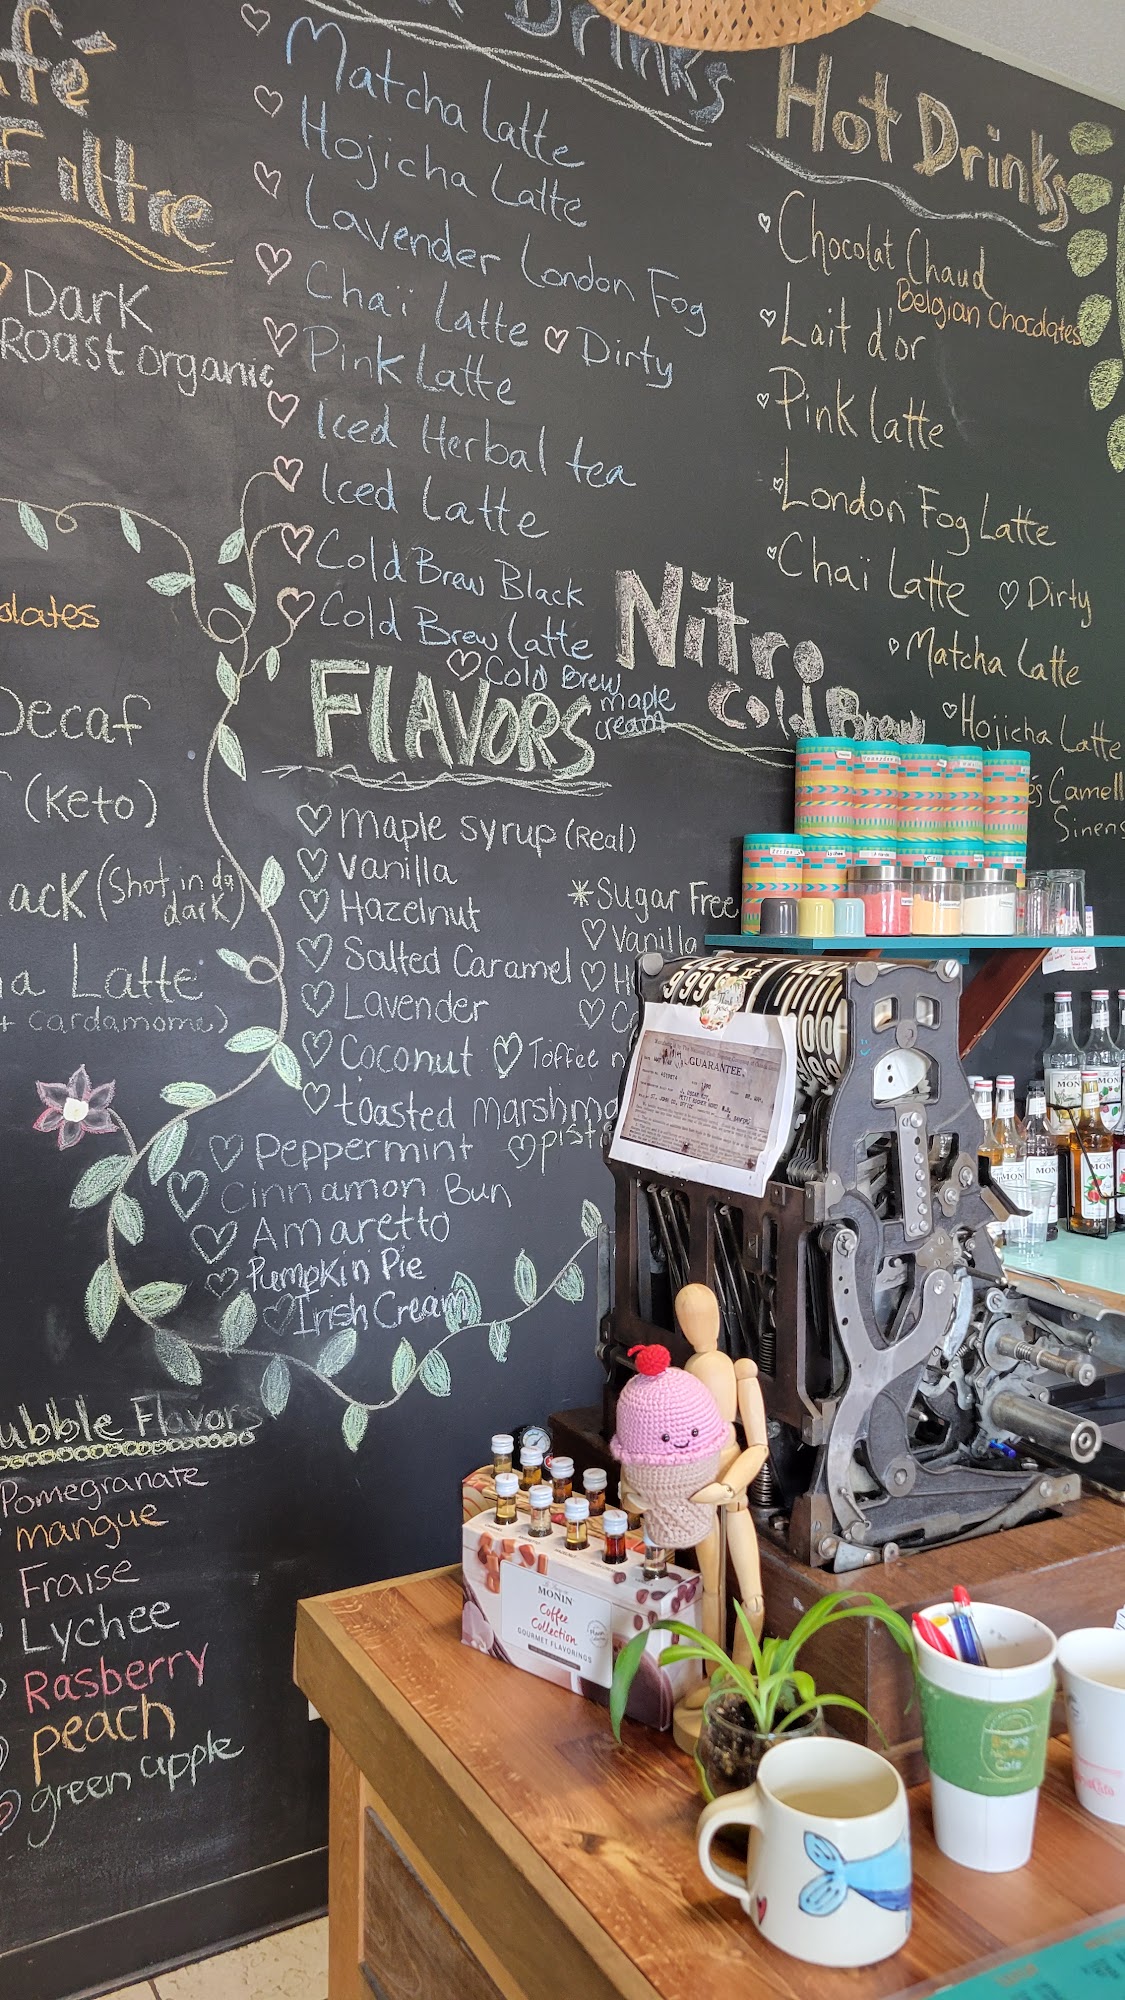 Filtre
Dark
Roast organic
Decaf
(Keto)
(Shot in da
dark)
Latte
cardamome)
Drinks
Matcha Latte
Hojicha Latte
Lavender London Fog
Chaï Latte Dirty
Pink Latte
Iced Herbal tea
Iced Latte
Cold Brew Black
Cold Brew Latte
Cold Brew
maple
cream
FLAVORS
maple syrup (Real)
Vanilla
Hazelnut
Salted Caramel
Lavender
Coconut Toffee
toasted
Peppermint
Cinnamon Bun
Amaretto
Pumpkin Pie
Irish Cream
*Sugar Free
Vanilla
Nitro
Cold Brew
Hot Drinks
Chocolat Chaud
Belgian Chocolates
Lait d'or
Pink latte
London Fog Latte
Chaï Latte Dirty
Matcha Latte
Hojicha Latte
Flavors
Pomegranate
mangue
Fraise
Lychee
Rasberry
peach
green apple
GUARANTEE
MONIN
Coffee
Collection
GOURMET FLAVORINGS